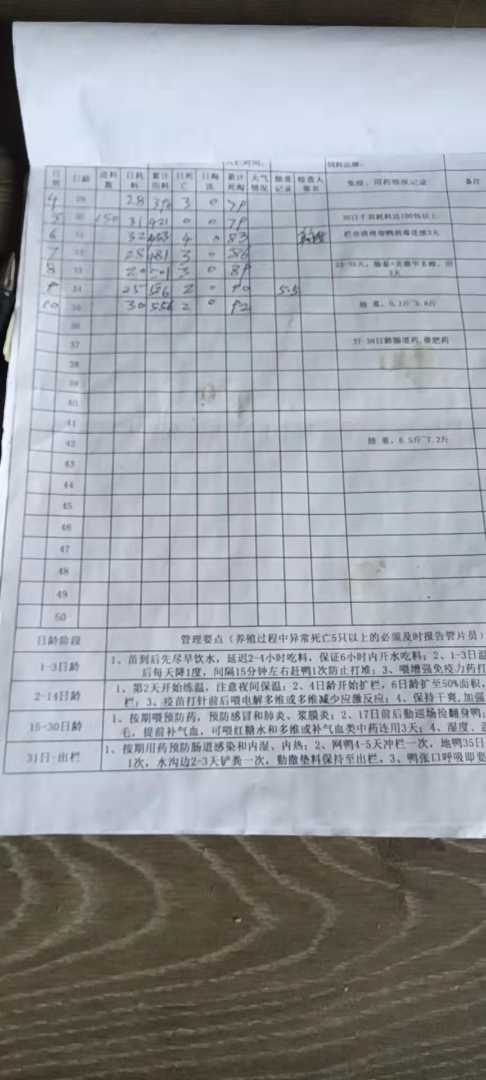 入栏时间: 饲料品牌:
日期 日龄 进料数 日耗料 累计用料 日死亡 日淘汰 累计死淘 天气情况 抽查记录 检查人签名 免疫、用药情况记录 备注
4 29 28 390 3 0 79
5 30 150 31 421 0 0 79 30日千羽耗料达100包以上
6 31 32 453 4 0 83
7 32 28 481 3 0 86
8 33 20 501 3 0 89
9 34 25 526 2 0 90 5.5
10 35 30 556 2 0 92
36
37 37-38日龄肠道药,催肥药
38
39
40
41
42 抽重,6.5斤-7.2斤
43
44
45
46
47
48
49
50
日龄阶段 管理要点(养殖过程中异常死亡5只以上的必须及时报告管片员)
1-3日龄 1、苗到后先尽早饮水,延迟2-4小时吃料,保证6小时内开水吃料;2、1-3日温
后每天降1度,间隔15分钟左右赶鸭1次防止打堆;3、喂增强免疫力药打
2-14日龄 1、第2天开始练温,注意夜间保温;2、4日龄开始扩栏,6日龄扩至50%面积,
栏;3、疫苗打针前后喂电解多维或多维减少应激反应;4、保持干爽,加强
15-30日龄 1、按期喂预防药,预防感冒和肺炎、浆膜炎;2、17日前后勤巡场捡翻身鸭;
毛,提前补气血,可喂红糖水和多维或补气血类中药连用3天;4、湿度,
31日-出栏 1、按期用药预防肠道感染和内湿、内热;2、网鸭4-5天冲栏一次,地鸭35日
1次,水沟边2-3天铲粪一次,勤撒垫料保持至出栏,3、鸭张口呼吸即要